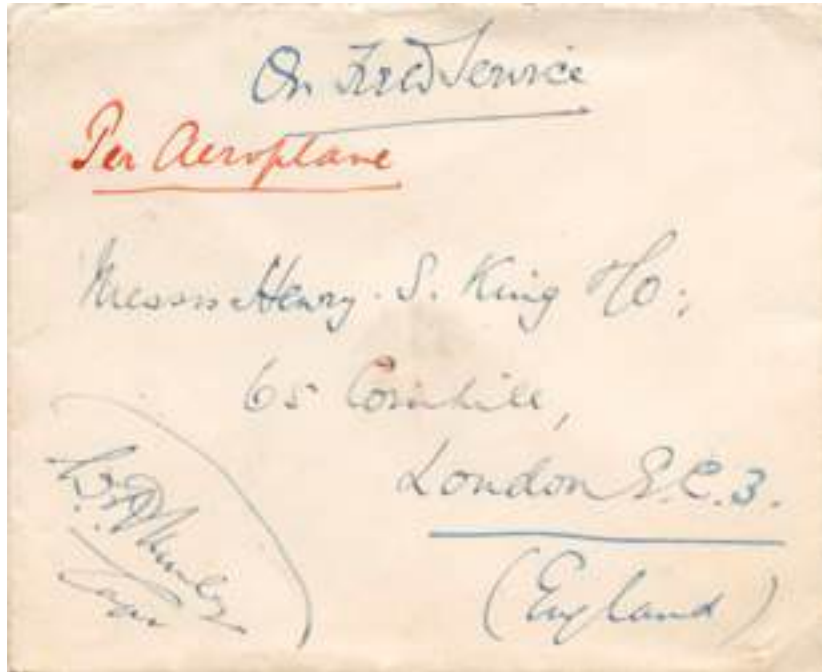 On Field Service
Per Aeroplane
Messrs Henry. S. King & Co:
65 Cornhill,
London E.C.3.
(England)
Capt